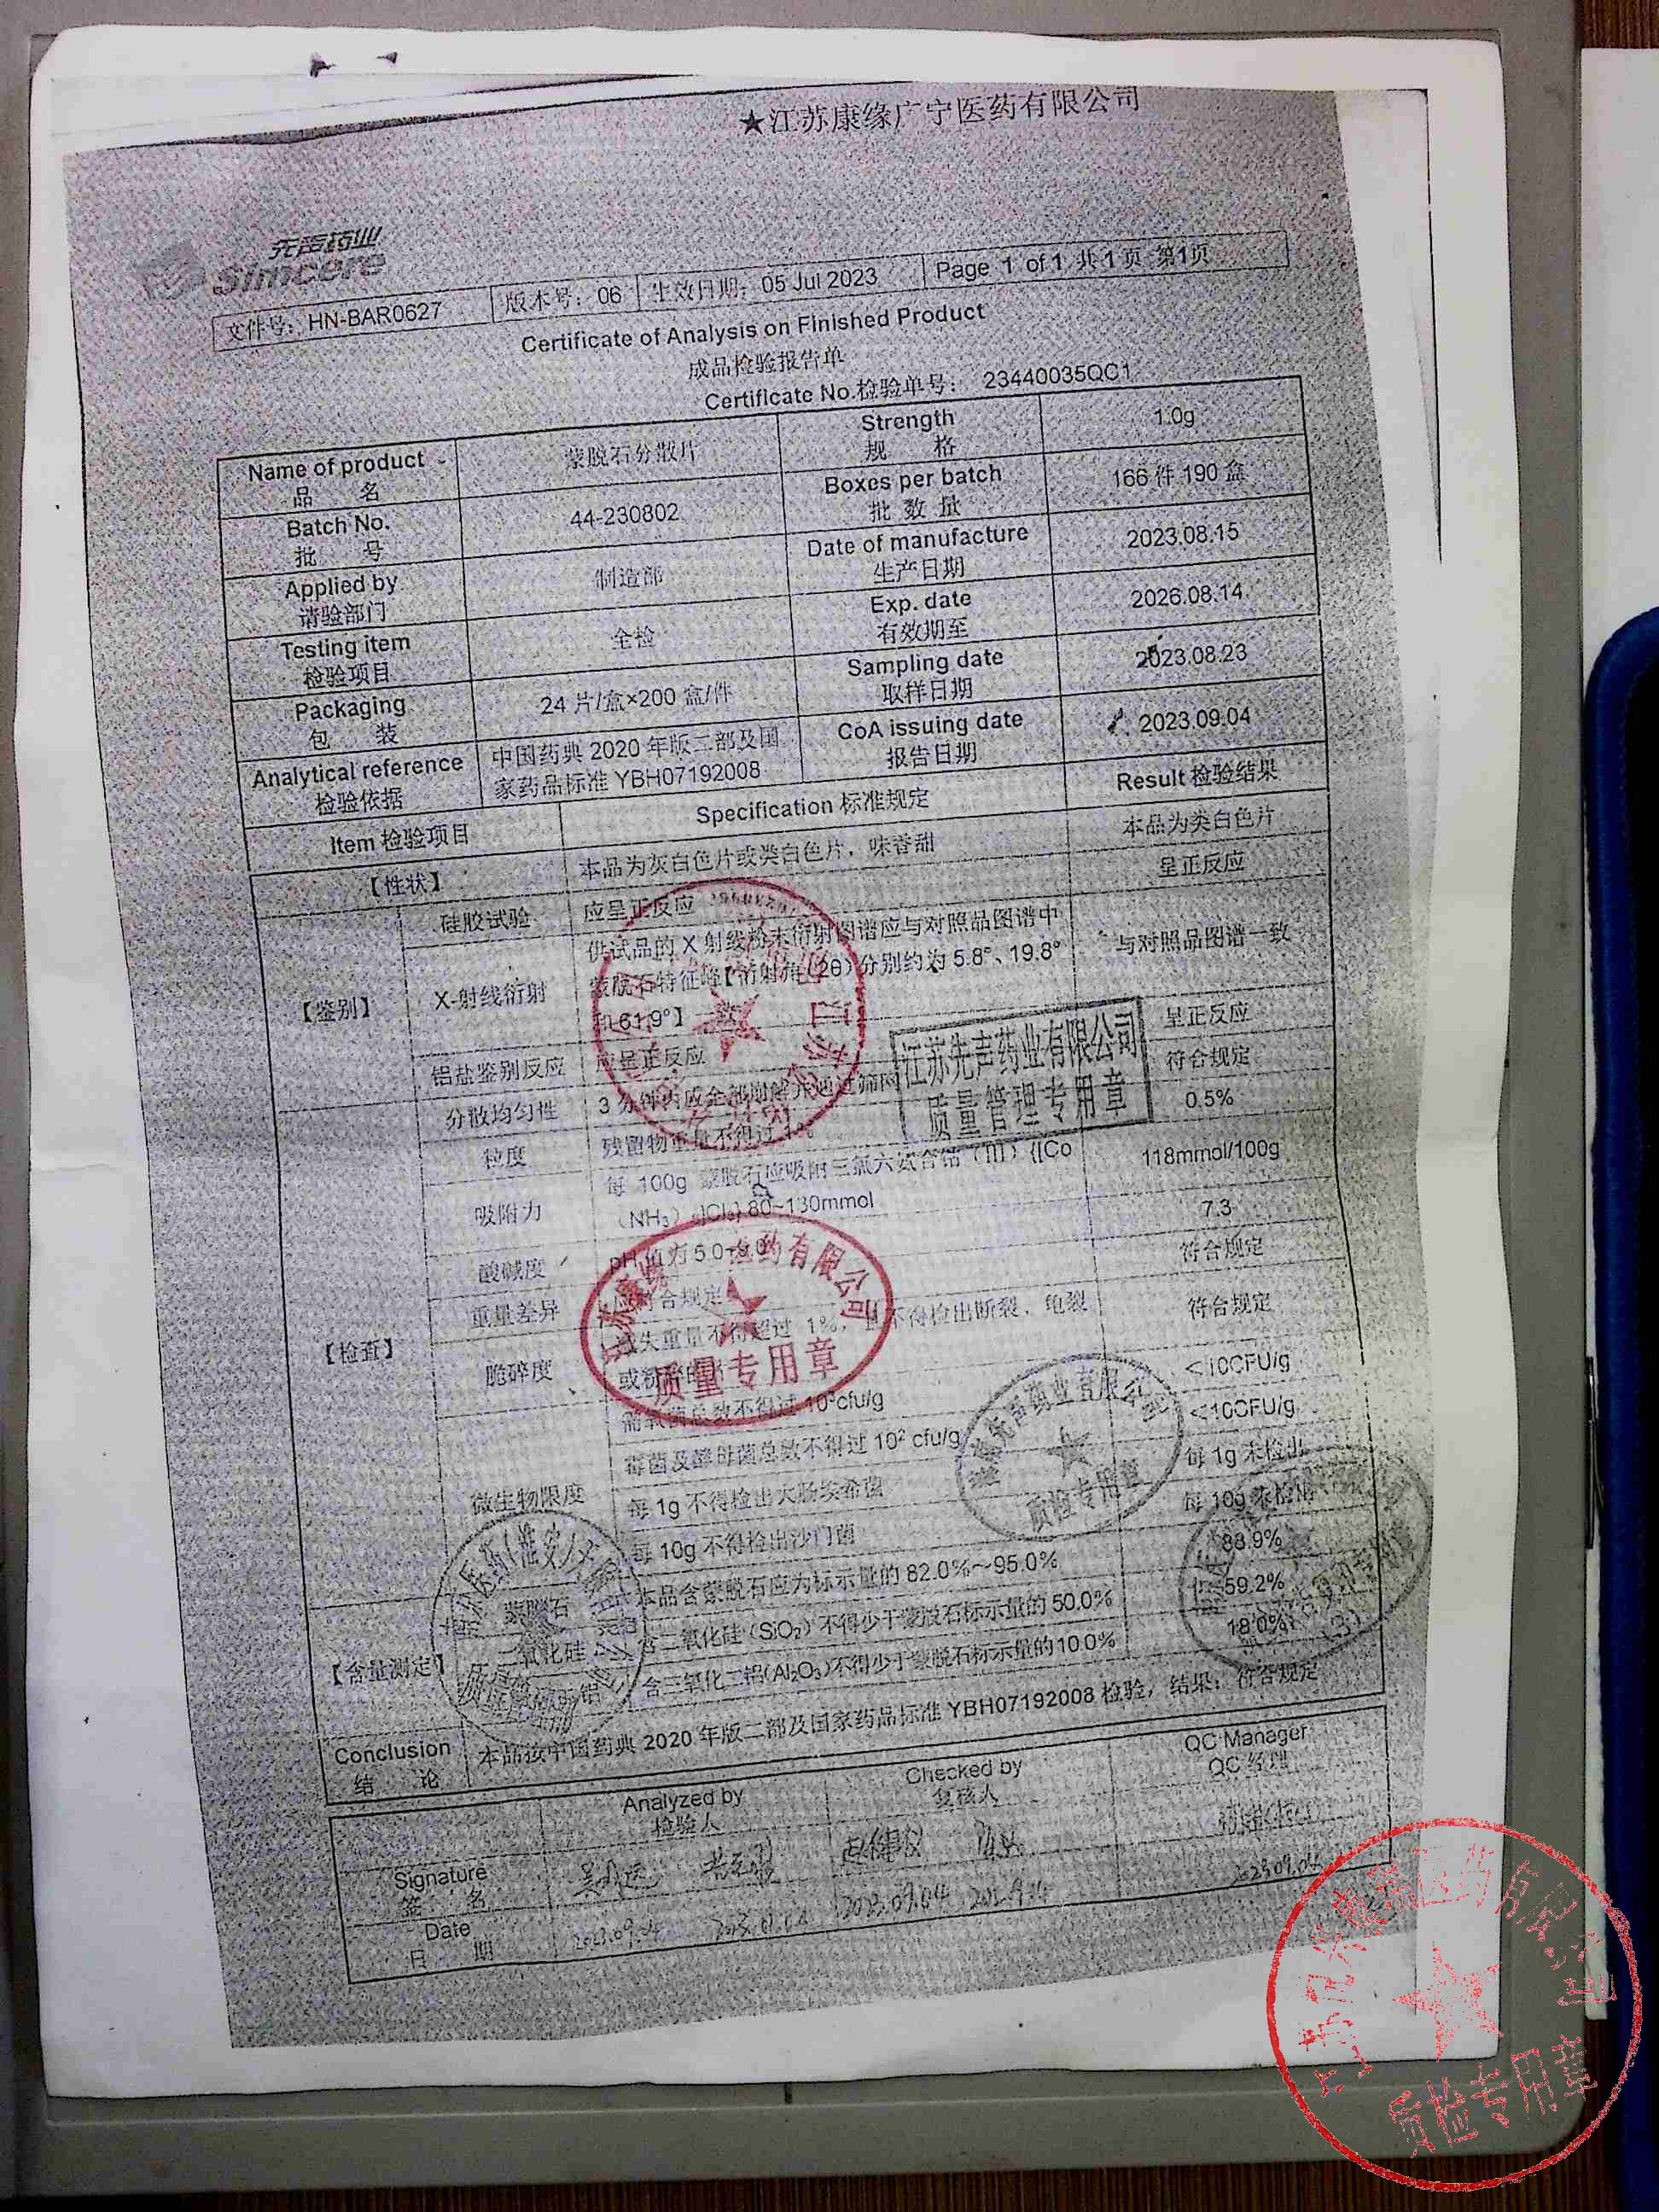 ★江苏康缘广宁医药有限公司
先声药业
Simcere
文件号：HN-BAR0627 版本号：06 生效日期：05 Jul 2023 Page 1 of 1 共1页 第1页
Certificate of Analysis on Finished Product
成品检验报告单
Certificate No.检验单号： 23440035QC1
Name of product 品 名 蒙脱石分散片 Strength 规 格 1.0g
Batch No. 批 号 44-230802 Boxes per batch 批 数 量 166 件 190 盒
Applied by 请验部门 制造部 Date of manufacture 生产日期 2023.08.15
Testing item 检验项目 全检 Exp. date 有效期至 2026.08.14
Packaging 包 装 24 片/盒×200 盒/件 Sampling date 取样日期 2023.08.23
Analytical reference 检验依据 中国药典 2020 年版二部及国家药品标准 YBH07192008 CoA issuing date 报告日期 2023.09.04
Item 检验项目 Specification 标准规定 Result 检验结果
【性状】 本品为灰白色片或类白色片，味香甜 本品为类白色片
【鉴别】 硅胶试验 应呈正反应 呈正反应
X-射线衍射 供试品的 X 射线粉末衍射图谱应与对照品图谱中
蒙脱石特征峰【衍射角（2θ）分别约为 5.8°、19.8°
和 61.9°】 与对照品图谱一致
铝盐鉴别反应 应呈正反应 呈正反应
【检查】 分散均匀性 3 分钟内应全部崩解并通过筛网 符合规定
粒度 残留物重量不得过 1% 0.5%
吸附力 每 100g 蒙脱石应吸附三氯六氨合钴（III）{[Co
（NH₃）₆]Cl₃} 80~130mmol 118mmol/100g
酸碱度 pH 值为 5.0~9.0 7.3
重量差异 应符合规定 符合规定
脆碎度 减失重量不得超过 1%，且不得检出断裂、龟裂
或粉碎的片 符合规定
微生物限度 需氧菌总数不得过 10³cfu/g <10CFU/g
霉菌及酵母菌总数不得过 10² cfu/g <10CFU/g
每 1g 不得检出大肠埃希菌 每 1g 未检出
每 10g 不得检出沙门菌 每 10g 未检出
【含量测定】 蒙脱石 本品含蒙脱石应为标示量的 82.0%～95.0% 88.9%
二氧化硅 含二氧化硅（SiO₂）不得少于蒙脱石标示量的 50.0% 59.2%
含三氧化二铝(Al₂O₃)不得少于蒙脱石标示量的10.0% 18.0%
Conclusion 结 论 本品按中国药典 2020 年版二部及国家药品标准 YBH07192008 检验，结果：符合规定
Analyzed by 检验人 Checked by 复核人 QC Manager QC 经理
Signature 签 名
Date 日 期 2023.09.04 2023.09.04 2023.09.04
江苏先声药业有限公司
质量管理专用章
医药有限公司
质量专用章
海南先声药业有限公司
质检专用章
质检专用章